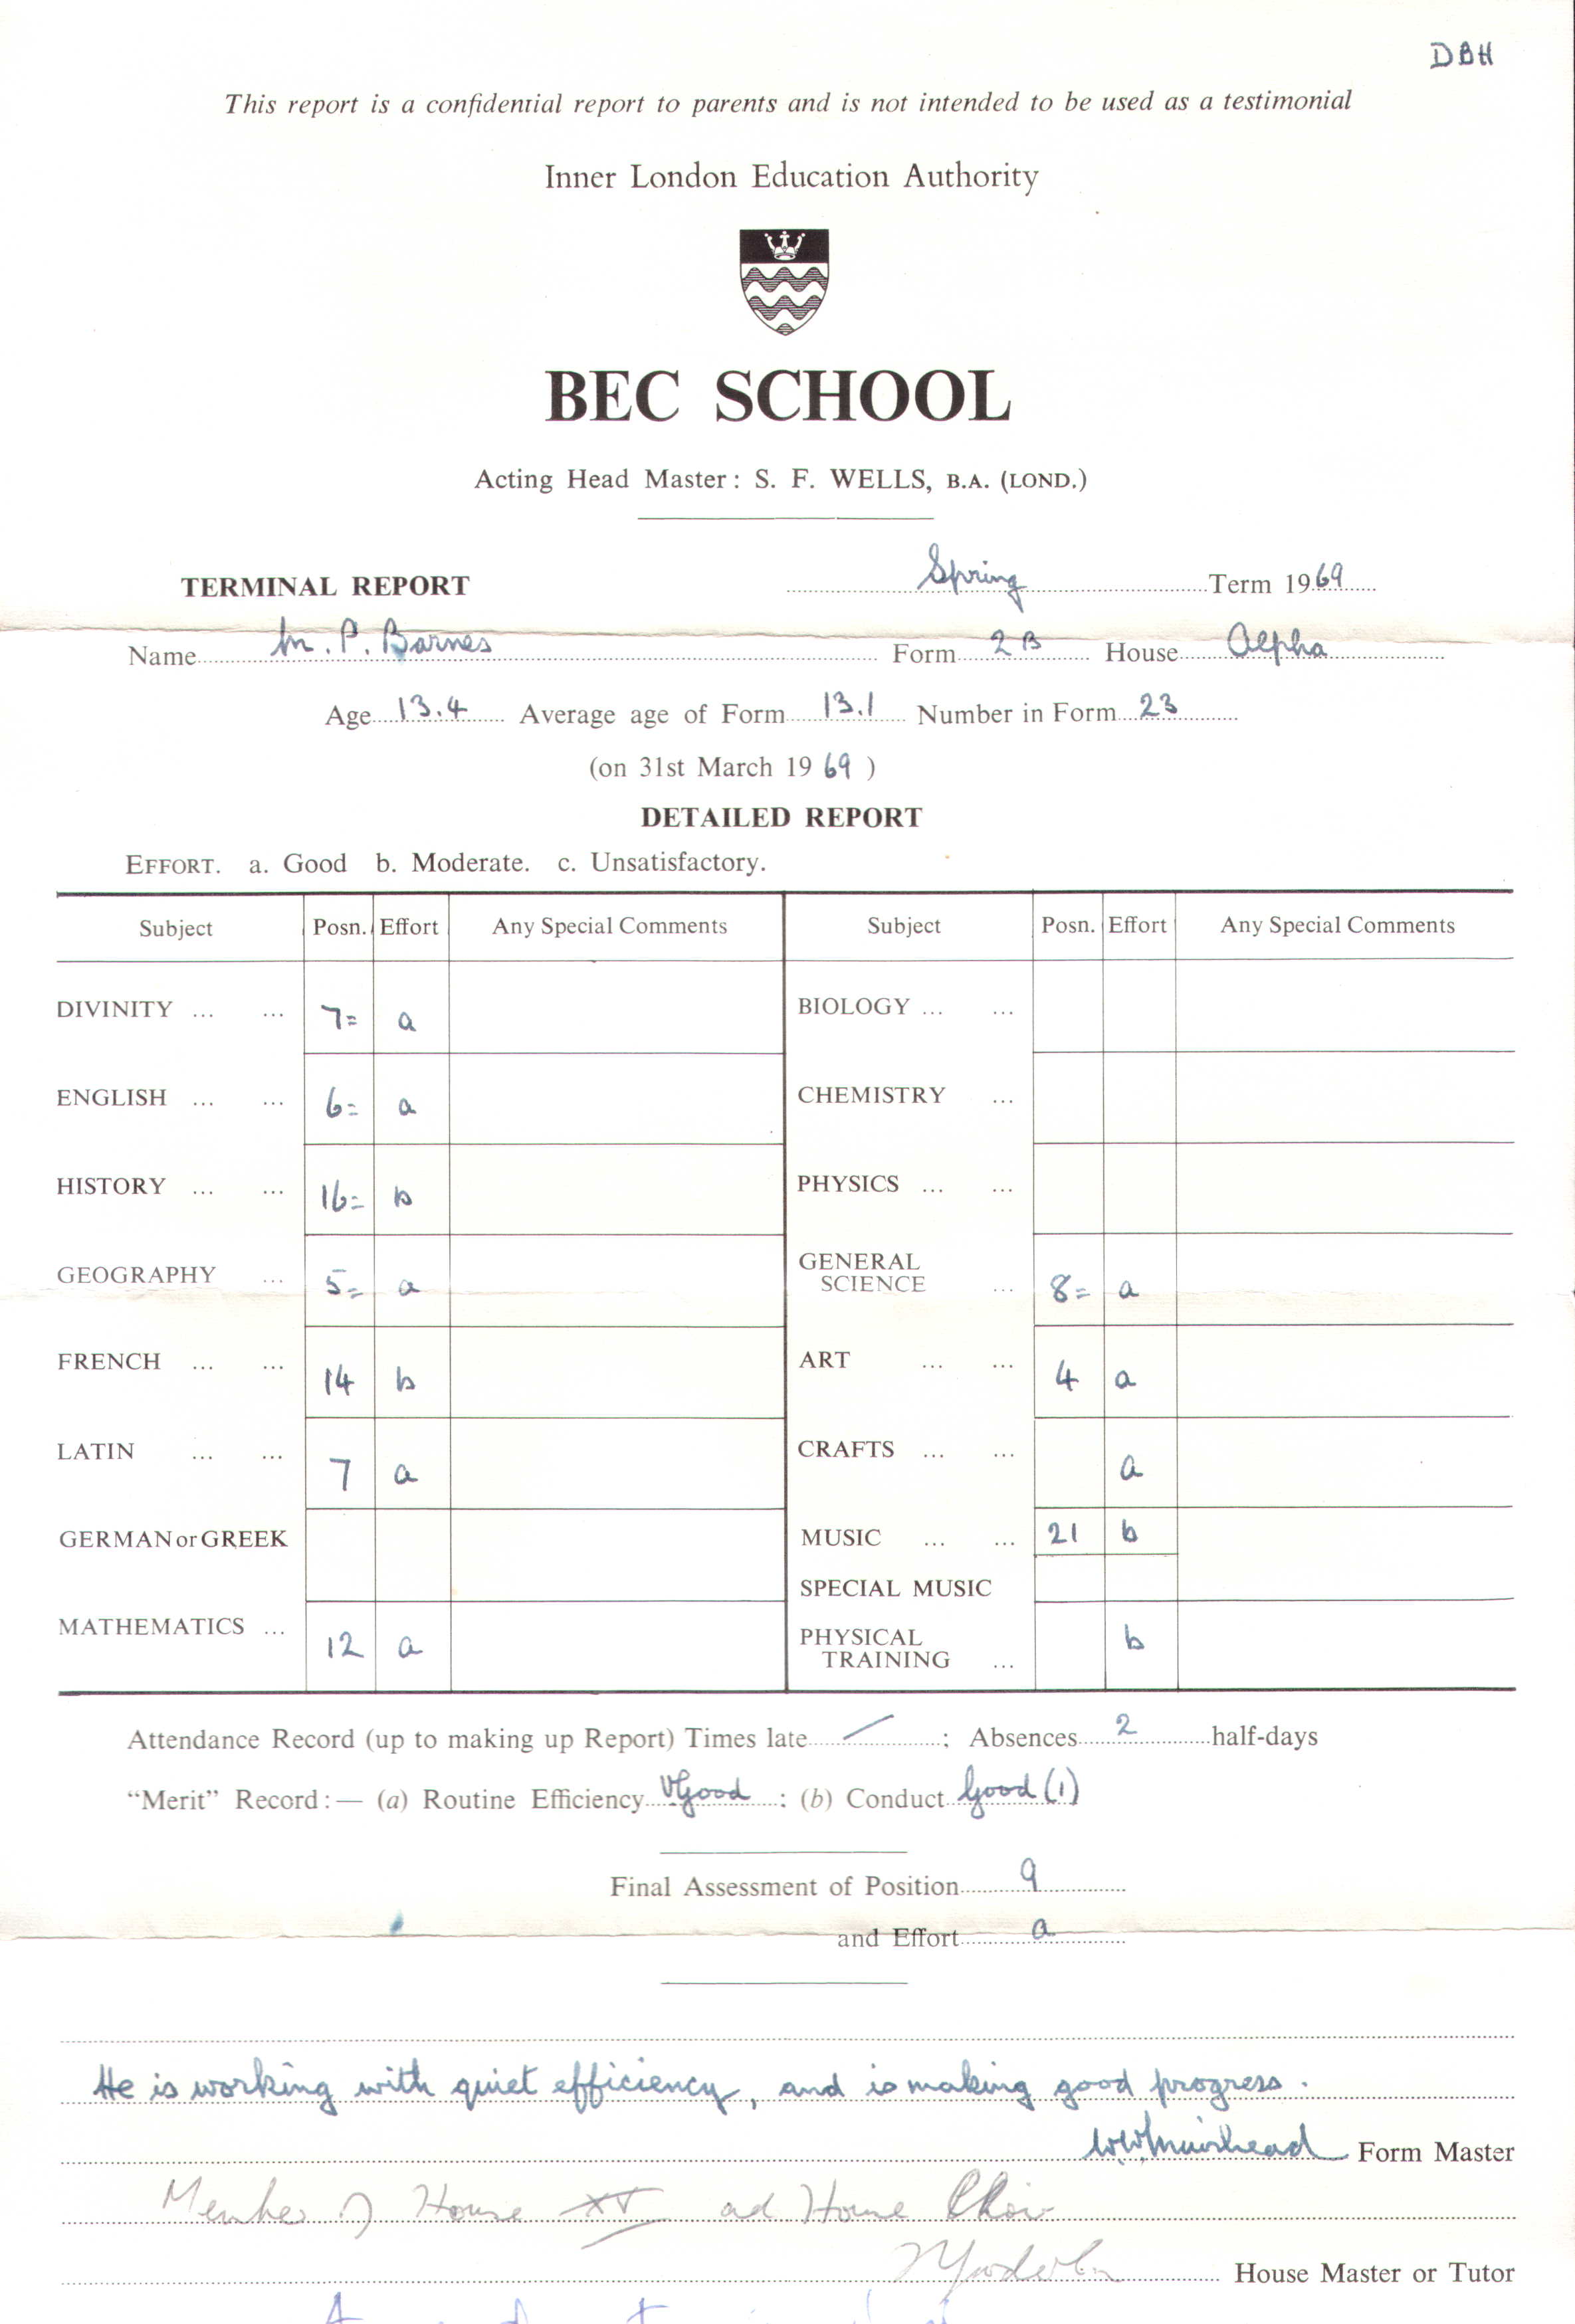 DBH
This report is a confidential report to parents and is not intended to be used as a testimonial
Inner London Education Authority
BEC SCHOOL
Acting Head Master: S. F. WELLS, B.A. (LOND.)
TERMINAL REPORT Spring Term 1969
Name M. P. Barnes Form 2B House Alpha
Age 13.4 Average age of Form 13.1 Number in Form 23
(on 31st March 1969)
DETAILED REPORT
EFFORT. a. Good b. Moderate. c. Unsatisfactory.
Subject Posn. Effort Any Special Comments Subject Posn. Effort Any Special Comments
DIVINITY ... ... 7= a BIOLOGY ... ...
ENGLISH ... ... 6= a CHEMISTRY ...
HISTORY ... ... 16= b PHYSICS ... ...
GEOGRAPHY ... 5= a GENERAL
SCIENCE ... 8= a
FRENCH ... ... 14 b ART ... ... 4 a
LATIN ... ... 7 a CRAFTS ... ... a
GERMAN or GREEK MUSIC ... ... 21 b
SPECIAL MUSIC
MATHEMATICS ... 12 a PHYSICAL
TRAINING ... b
Attendance Record (up to making up Report) Times late / : Absences 2 half-days
"Merit" Record:— (a) Routine Efficiency VGood : (b) Conduct Good (1)
Final Assessment of Position 9
and Effort a
He is working with quiet efficiency, and is making good progress.
W.W.Muirhead Form Master
Member of House XV and House Choir
House Master or Tutor